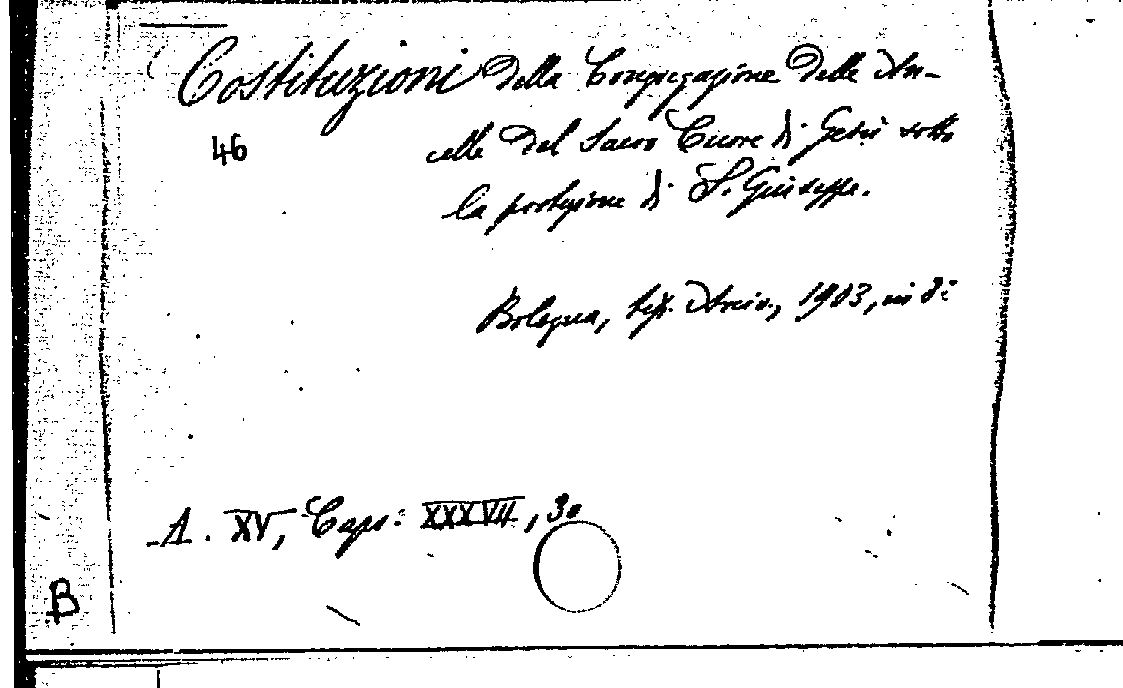 Costituzioni della Congregazione delle An-
46
celle del Sacro Cuore di Gesù sotto
la protezione di S. Giuseppe.
Bologna, tip. Arciv., 1903, in 8°
A. XV, Caps: XXXVII, 30
B